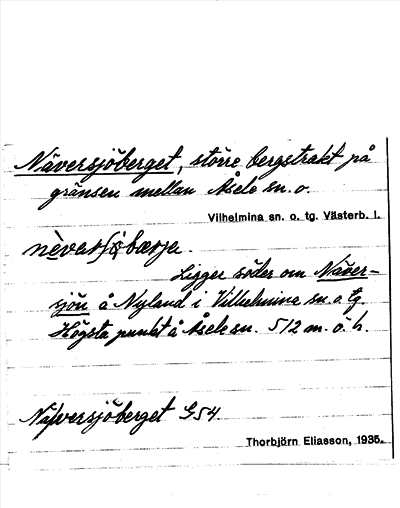 Näversjöberget, större bergstrakt på
gränsen mellan Åsele sn. o.
Vilhelmina sn. o. tg. Västerb. l.
nèverʃøbærje.
Ligger söder om Näver-
sjön å Nyland i Vilhelmina sn. o tg.
Högsta punkt å Åsele sn. 512 m. ö. h.
Näversjöberget G54
Thorbjörn Eliasson, 1935.